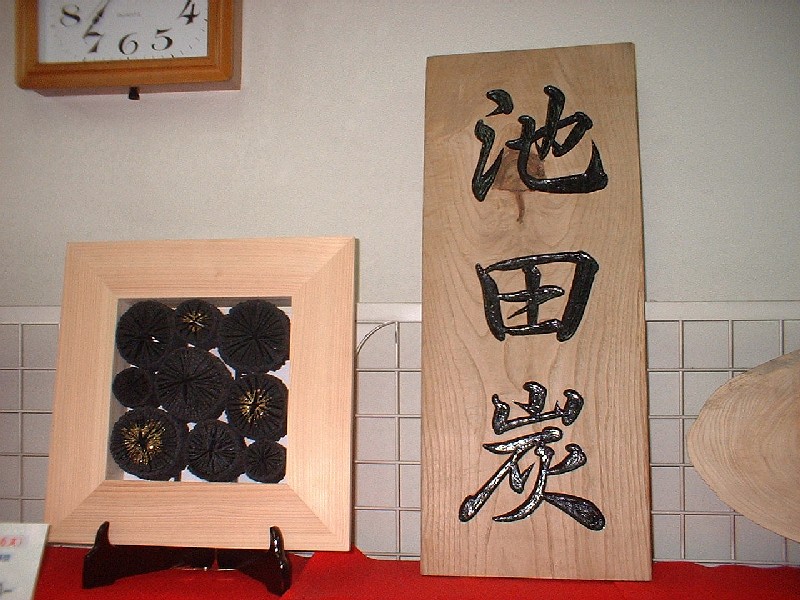 8 7 6 5 4
池田炭